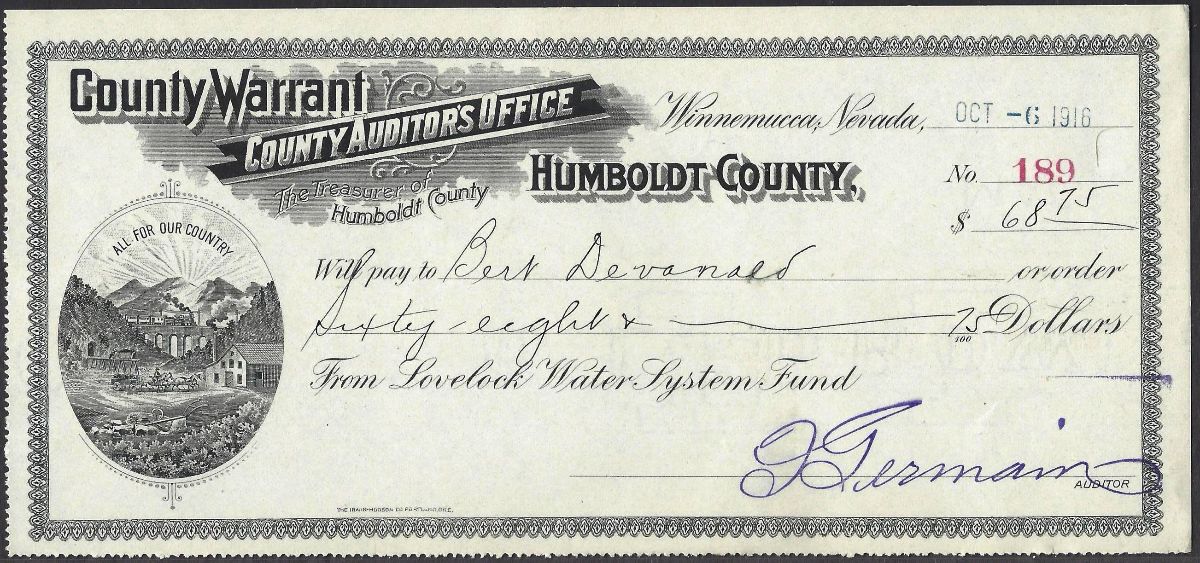 County Warrant
COUNTY AUDITOR'S OFFICE
The Treasurer of
Humboldt County
Winnemucca, Nevada, OCT -6 1916
HUMBOLDT COUNTY,
No. 189
$ 68 75
ALL FOR OUR COUNTRY
Will pay to Bert Devanald or order
Sixty-eight & 75/100 Dollars
From Lovelock Water System Fund
Germain
AUDITOR
THE IRWIN-HODSON CO PORTLAND, ORE.